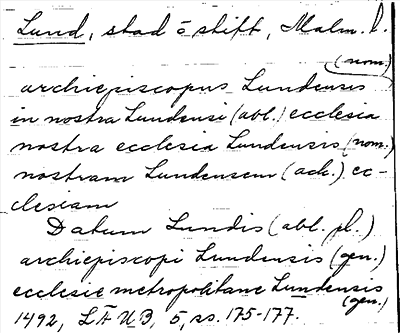 Lund, stad o stift, Malm. l.
(nom.)
archiepiscopus Lundensis
in nostra Lundensi (abl.) ecclesia
nostra ecclesia Lundensis (nom.)
nostram Lundensem (ack.) ec-
clesiam
Datum Lundis (abl. pl.)
archiepiscopi Lundensis (gen.)
ecclesie metropolitane Lundensis
(gen.)
1492, LÄUB, 5, ss. 175-177.